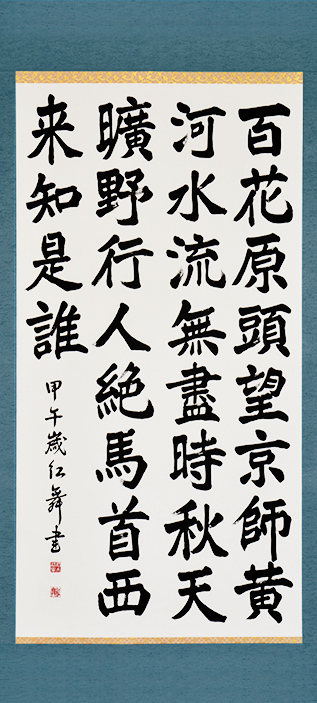 百花原頭望京師黄
河水流無盡時秋天
曠野行人絶馬首西
来知是誰
甲午歳红舞書